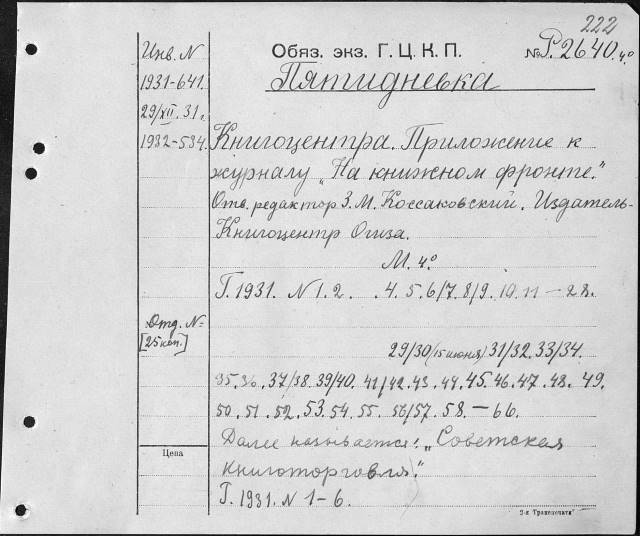 222
Инв. N
Обяз. экз. Г. Ц. К. П.
№ Р.2640. 4.0
1931-641.
Пятидневка
29/XII. 31 г.
1932-534.
Книгоцентра. Приложение к
журналу „На книжном фронте."
Отв. редактор З. М. Коссаковский. Издатель-
Книгоцентр Огиза.
М. 4.0
Г. 1931. N 1. 2. .4. 5. 6/7. 8/9. 10. 11 - 28.
Отд. N=
[25 коп.]
29/30 (15 июня) 31/32. 33/34.
35. 36. 37/38. 39/40. 41/42. 43. 44. 45. 46. 47. 48. 49.
50. 51. 52. 53. 54. 55. 56/57. 58. - 66.
Далее называется: „Советская
Цена
книготорговля."
Г. 1931. N 1-6.
2-я Транспечати